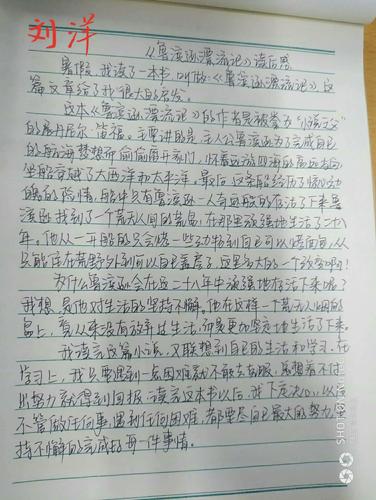 刘洋
《鲁滨逊漂流记》读后感
暑假,我读了一本书,叫做《鲁滨逊漂流记》,这
篇文章给了我很大的启发。
这本《鲁滨逊漂流记》的作者是被誉为"小说之父"
的丹尼尔·笛福。主要讲的是:主人公鲁滨逊为了完成自己
的航海梦想而偷偷离开家门,怀着远游四海的高远志向
坐船穿越了大西洋和太平洋。最后,这条船经历了惊心动
魄的险情,船中只有鲁滨逊一人奇迹般的存活了下来。鲁
滨逊找到了一个荒无人烟的荒岛,在那里顽强地生活了二十八
年。他从一开始的只会做一些到自己可以从
只能住在荒野外到可以自己盖房子,这是多大的一个改变啊!
为什么鲁滨逊会在这二十八年中顽强地存活下来呢?
我想,是他对生活的坚持不懈。他在这样一个荒无人烟的
岛上,看从来没有放弃过生活,而是更加坚定地生活了下来。
我读完这篇小说,又联想到自己的生活和学习。在
学习上,我只要遇到一点困难就不敢去克服,总想着不付
出努力就得到回报。读完这本书以后,我下定决心,以后
不管做任何事,遇到任何困难,都要尽自己最大的努力坚
持不懈的完成好每一件事情。
SHOT ON